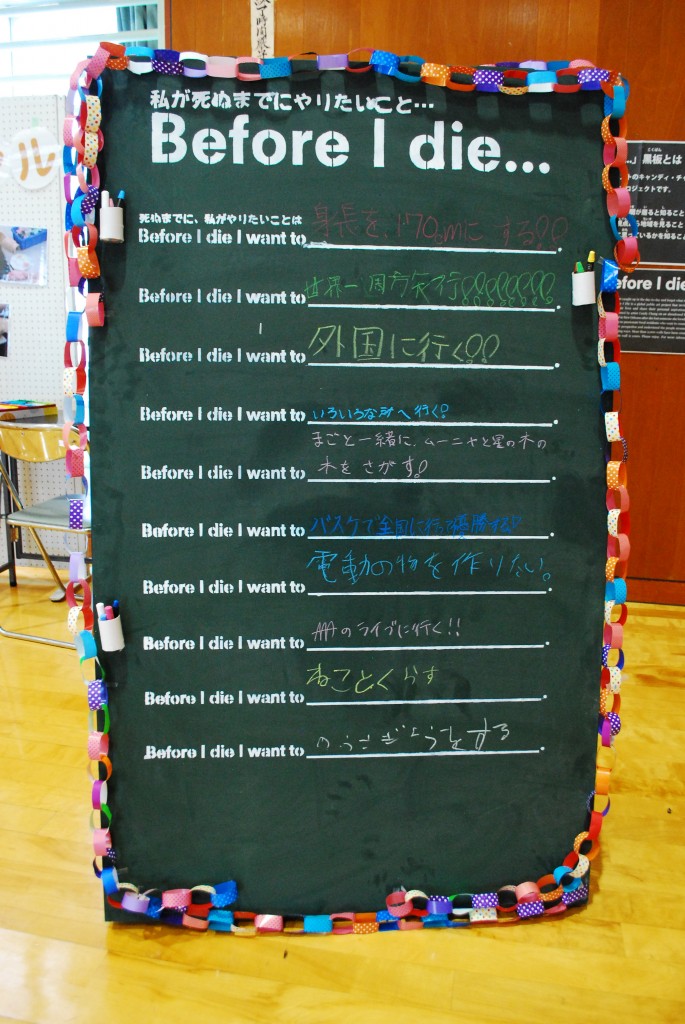 決丁時間展
ル
私が死ぬまでにやりたいこと…
Before I die...
死ぬまでに、私がやりたいことは
Before I die I want to 身長を170cmにする!!.
Before I die I want to 世界一周方矢行!!!!!!!!.
Before I die I want to 外国に行く!!.
Before I die I want to いろいろな所へ行く!.
まごと一緒に、ムーニャと星の木の
Before I die I want to 木をさがす!.
Before I die I want to バスケで全国に行って優勝する!!.
Before I die I want to 電動の物を作りたい。.
Before I die I want to AAAのライブに行く!!.
Before I die I want to ねことくらす.
Before I die I want to のうぎょうをする.
…」黒板とは
トのキャンディ・チャ
ロジェクトです。
Before I die